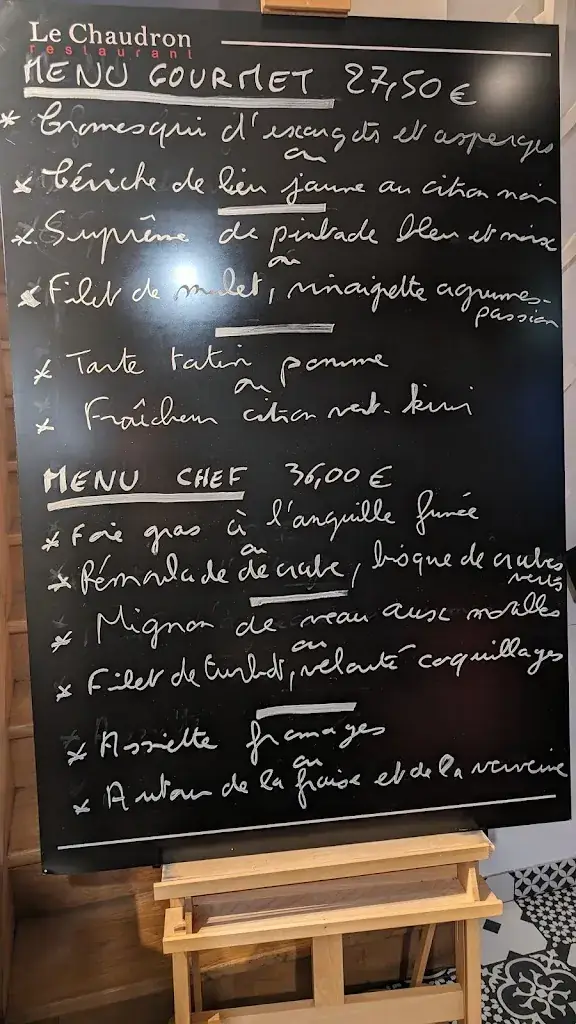 Le Chaudron
restaurant
MENU GOURMET 27,50 €
* Cromesqui d'escargots et asperges
ou
* Céviche de lieu jaune au citron noir
* Suprême de pintade bleu et noix
ou
* Filet de mulet, vinaigrette agrumes-
passion
* Tarte tatin pomme
ou
* Fraîcheur citron vert-kiwi
MENU CHEF 36,00 €
* Foie gras à l'anguille fumée
ou
* Rémoulade de crabe, bisque de crabes
verts
* Mignon de veau aux morilles
ou
* Filet de turbot, velouté coquillages
* Assiette fromages
ou
* Autour de la fraise et de la verveine